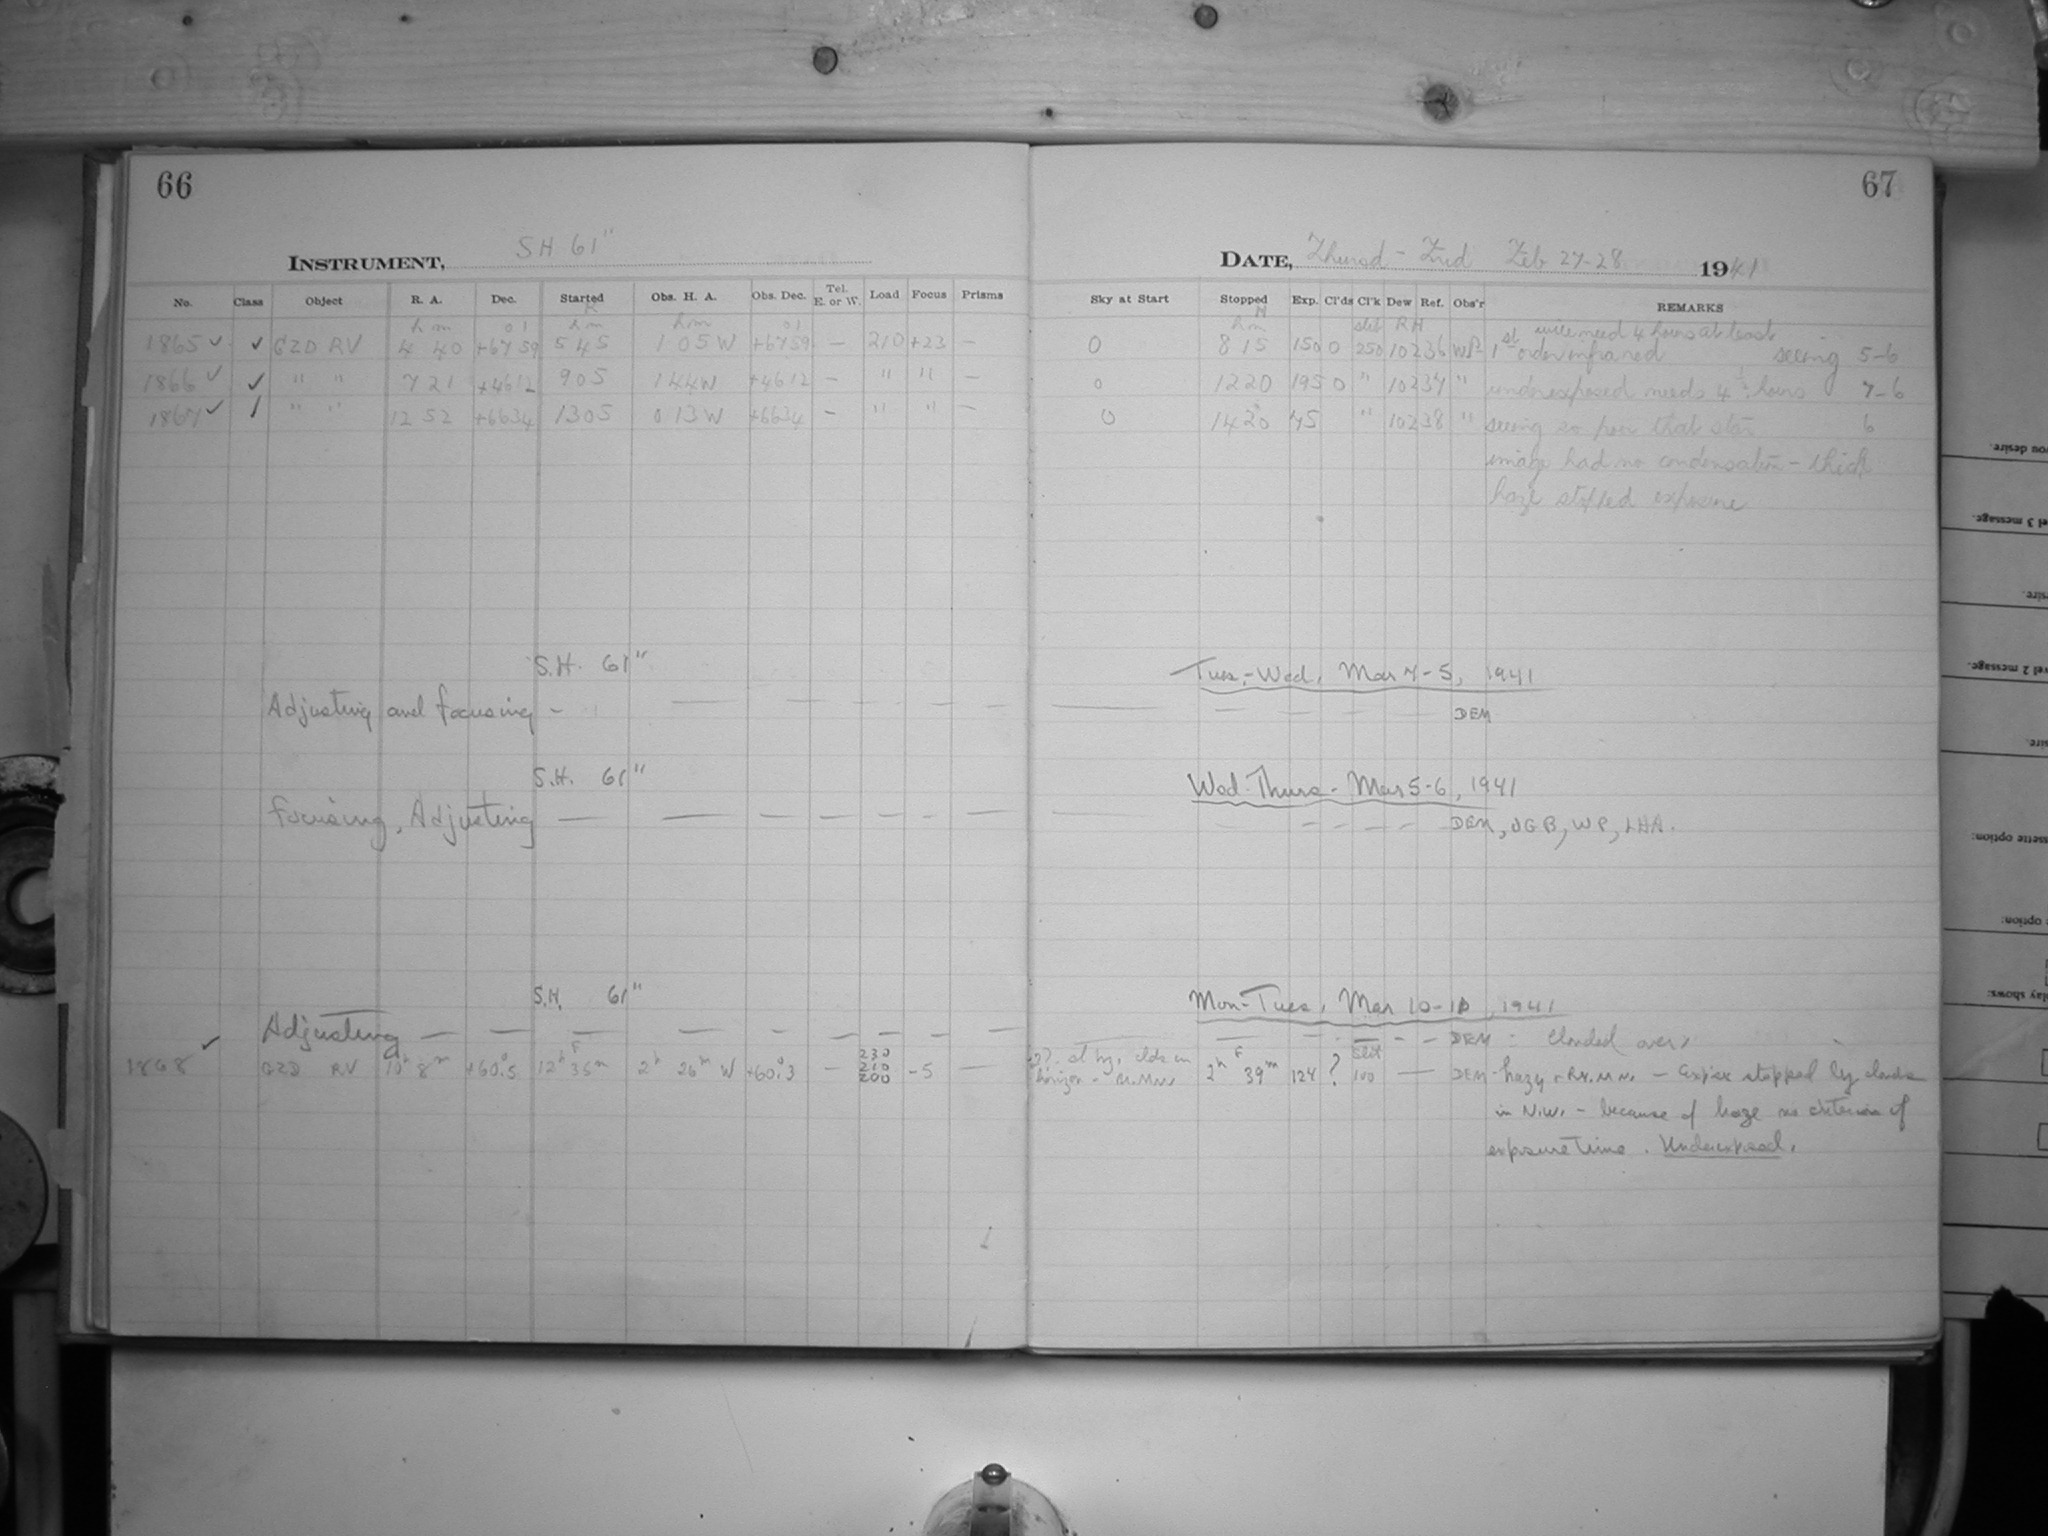 66
INSTRUMENT, SH 61"
No. Class Object R. A. Dec. Started Obs. H. A. Obs. Dec. Tel. E. or W. Load Focus Prisms
h m ° ' h m h m ° '
1865 ✓ ✓ GZD RV 4 40 +67 59 5 45 1 05 W +67 59 – 210 +23 –
1866 ✓ ✓ " " 7 21 +46 12 9 05 1 44 W +46 12 – " " –
1867 ✓ ✓ " " 12 52 +66 34 13 05 0 13 W +66 34 – " " –
S.H. 61"
Adjusting and focusing –
S.H. 61"
Focusing, Adjusting —
S.H. 61"
Adjusting —
1868 ✓ GZD RV 10h 8m +60.5 12h 35m 2h 26m W +60.3 – 230 210 200 -5 —
67
DATE, Thursd - Frid Feb 27-28 1941
Sky at Start Stopped Exp. Cl'ds Cl'k Dew Ref. Obs'r REMARKS
h m slit RH will need 4 hours at least
0 8 15 150 0 250 10236 WP 1st order infrared seeing 5-6
0 12 20 195 0 " 10237 " underexposed needs 4 1/2 hours 7-6
0 14 20 45 " 10238 " seeing so poor that star 6
image had no condensation - thick
haze stopped exposure
Tues.-Wed, Mar 4-5, 1941
DEM
Wed-Thurs- Mar 5-6, 1941
DEM, JGB, WP, LHA.
Mon-Tues, Mar 10-11, 1941
DEM : Clouded over
horizon - 2h 39m 124 ? slit 100 — DEM hazy - stopped by clouds
in N.W. - because of haze no criterion of
exposure time. Underexposed.